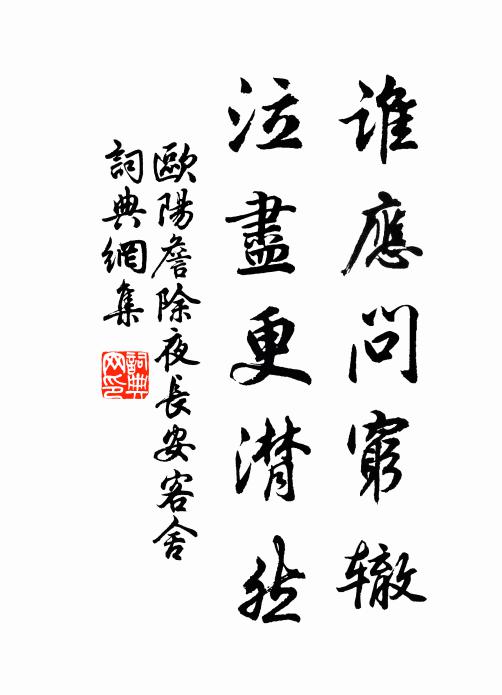 誰應問窮辙
泣盡更潸然
歐陽詹除夜長安客舍
詞典網集
詞典網印